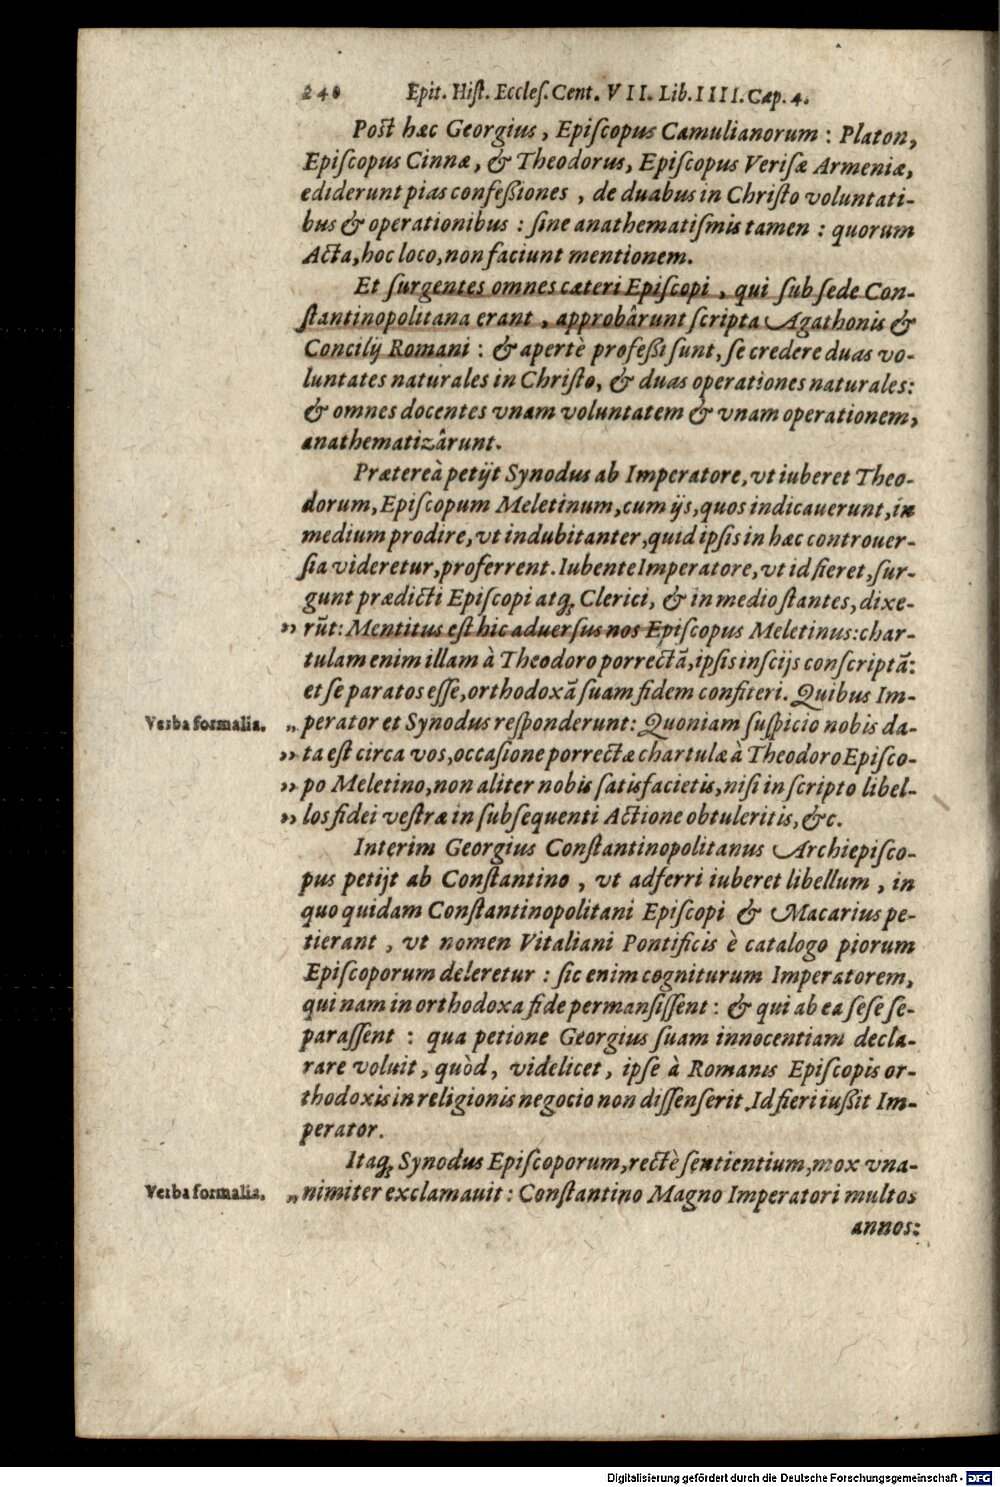 240 Epit. Hiſt. Eccleſ. Cent. VII. Lib. IIII. Cap. 4.
Poſt hæc Georgius, Epiſcopus Camulianorum : Platon,
Epiſcopus Cinnæ, & Theodorus, Epiſcopus Veriſæ Armeniæ,
ediderunt pias confeßiones, de duabus in Chriſto voluntati-
bus & operationibus : ſine anathematiſmis tamen : quorum
Acta, hoc loco, non faciunt mentionem.
Et ſurgentes omnes cæteri Epiſcopi, qui ſub ſede Con-
ſtantinopolitana erant, approbârunt ſcripta Agathonis &
Concilij Romani : & apertè profeßi ſunt, ſe credere duas vo-
luntates naturales in Chriſto, & duas operationes naturales:
& omnes docentes vnam voluntatem & vnam operationem,
anathematizârunt.
Prætereà petijt Synodus ab Imperatore, vt iuberet Theo-
dorum, Epiſcopum Meletinum, cum ijs, quos indicauerunt, in
medium prodire, vt indubitanter, quid ipſis in hac controuer-
ſia videretur, proferrent. Iubente Imperatore, vt id fieret, ſur-
gunt prædicti Epiſcopi atq́ Clerici, & in medio ſtantes, dixe-
„ rūt: Mentitus eſt hic aduerſus nos Epiſcopus Meletinus: char-
tulam enim illam à Theodoro porrectā, ipſis inſcijs conſcriptā:
et ſe paratos eſſe, orthodoxā ſuam fidem confiteri. Quibus Im-
Verba formalia. „ perator et Synodus reſponderunt: Quoniam ſuſpicio nobis da-
„ ta eſt circa vos, occaſione porrectæ chartulæ à Theodoro Epiſco-
„ po Meletino, non aliter nobis ſatisfacietis, niſi in ſcripto libel-
„ los fidei veſtræ in ſubſequenti Actione obtuleritis, &c.
Interim Georgius Conſtantinopolitanus Archiepiſco-
pus petijt ab Conſtantino, vt adferri iuberet libellum, in
quo quidam Conſtantinopolitani Epiſcopi & Macarius pe-
tierant, vt nomen Vitaliani Pontificis è catalogo piorum
Epiſcoporum deleretur : ſic enim cogniturum Imperatorem,
qui nam in orthodoxa fide permanſiſſent : & qui ab ea ſeſe ſe-
paraſſent : qua petione Georgius ſuam innocentiam decla-
rare voluit, quòd, videlicet, ipſe à Romanis Epiſcopis or-
thodoxis in religionis negocio non diſſenſerit. Id fieri iußit Im-
perator.
Itaq́ Synodus Epiſcoporum, rectè ſentientium, mox vna-
Verba formalia. „ nimiter exclamauit : Conſtantino Magno Imperatori multos
annos:
Digitalisierung gefördert durch die Deutsche Forschungsgemeinschaft - DFG